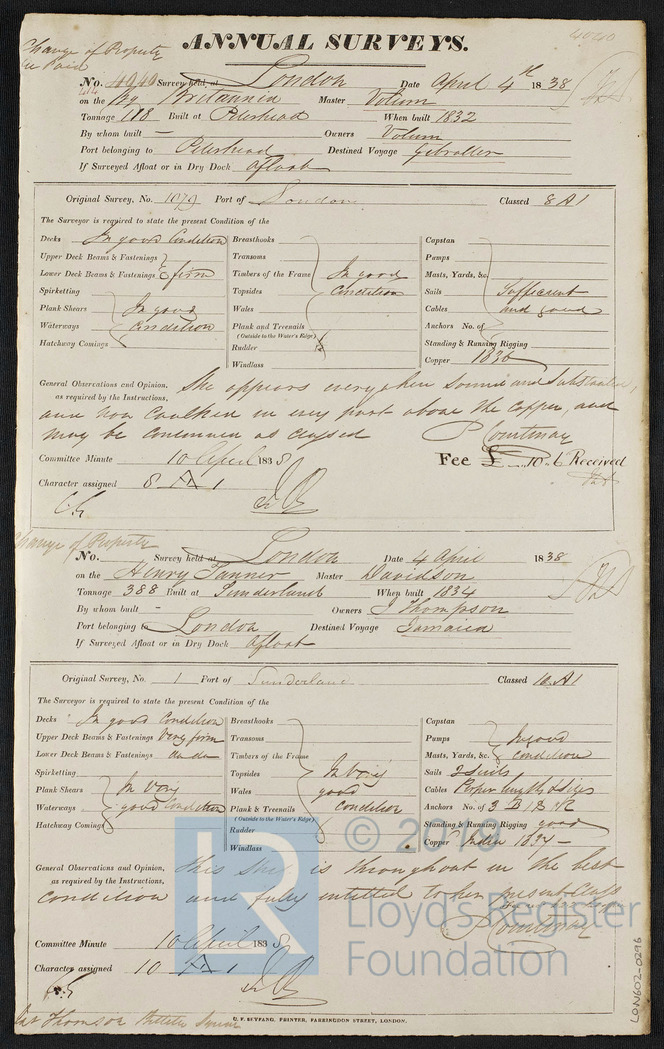 4040
Change of Property
ANNUAL SURVEYS.
No. 4040 Survey held at London Date April 4th 1838
on the Britannia Master Volum
Tonnage 118 Built at Peterhead When built 1832
By whom built – Owners Volum
Port belonging to Peterhead Destined Voyage Gibralter
If Surveyed Afloat or in Dry Dock Afloat
Original Survey, No. 1079 Port of London Classed 8 A1
The Surveyor is required to state the present Condition of the
Decks In good Condition
Upper Deck Beams & Fastenings
Lower Deck Beams & Fastenings firm
Spirketting
Plank Shears In good
Waterways Condition
Hatchway Comings
Breasthooks
Transoms
Timbers of the Frame In good
Topsides Condition
Wales
Plank and Treenails
(Outside to the Water's Edge)
Rudder
Windlass
Capstan
Pumps
Masts, Yards, &c.
Sails Sufficient
Cables and good
Anchors No. of
Standing & Running Rigging
Copper 1836
General Observations and Opinion, She appears every where Sound and Substantial,
as required by the Instructions,
and now Caulked in every part above the Copper, and
may be continued as classed P Courtenay
Committee Minute 10 April 1838
Fee £ „ 10 „ 6 Received
Character assigned 8 A 1
Change of Property
No. Survey held at London Date 4 April 1838
on the Henry Tanner Master Davidson
Tonnage 388 Built at Sunderland When built 1834
By whom built – Owners J Thompson
Port belonging to London Destined Voyage Jamaica
If Surveyed Afloat or in Dry Dock Afloat
Original Survey, No. 1 Port of Sunderland Classed 10 A1
The Surveyor is required to state the present Condition of the
Decks In good Condition
Upper Deck Beams & Fastenings Very firm
Lower Deck Beams & Fastenings
Spirketting
Plank Shears In Very
Waterways good Condition
Hatchway Comings
Breasthooks
Transoms
Timbers of the Frame
Topsides In Very
Wales good
Plank & Treenails Condition
(Outside to the Water's Edge)
Rudder
Windlass
Capstan
Pumps In good
Masts, Yards, &c. Condition
Sails 2 Suits
Cables Proper lengths & sizes
Anchors No. of 3 B 1 S
Standing & Running Rigging good
Copper 1837 –
General Observations and Opinion, This Ship is throughout in the best
as required by the Instructions,
Condition and fully intitled to her present Class
P Courtenay
Committee Minute 10 April 1838
Character assigned 10 A 1
G. F. SEYFANG, PRINTER, FARRINGDON STREET, LONDON.
LR © 2019
Lloyd's Register
Foundation
LON602-0296